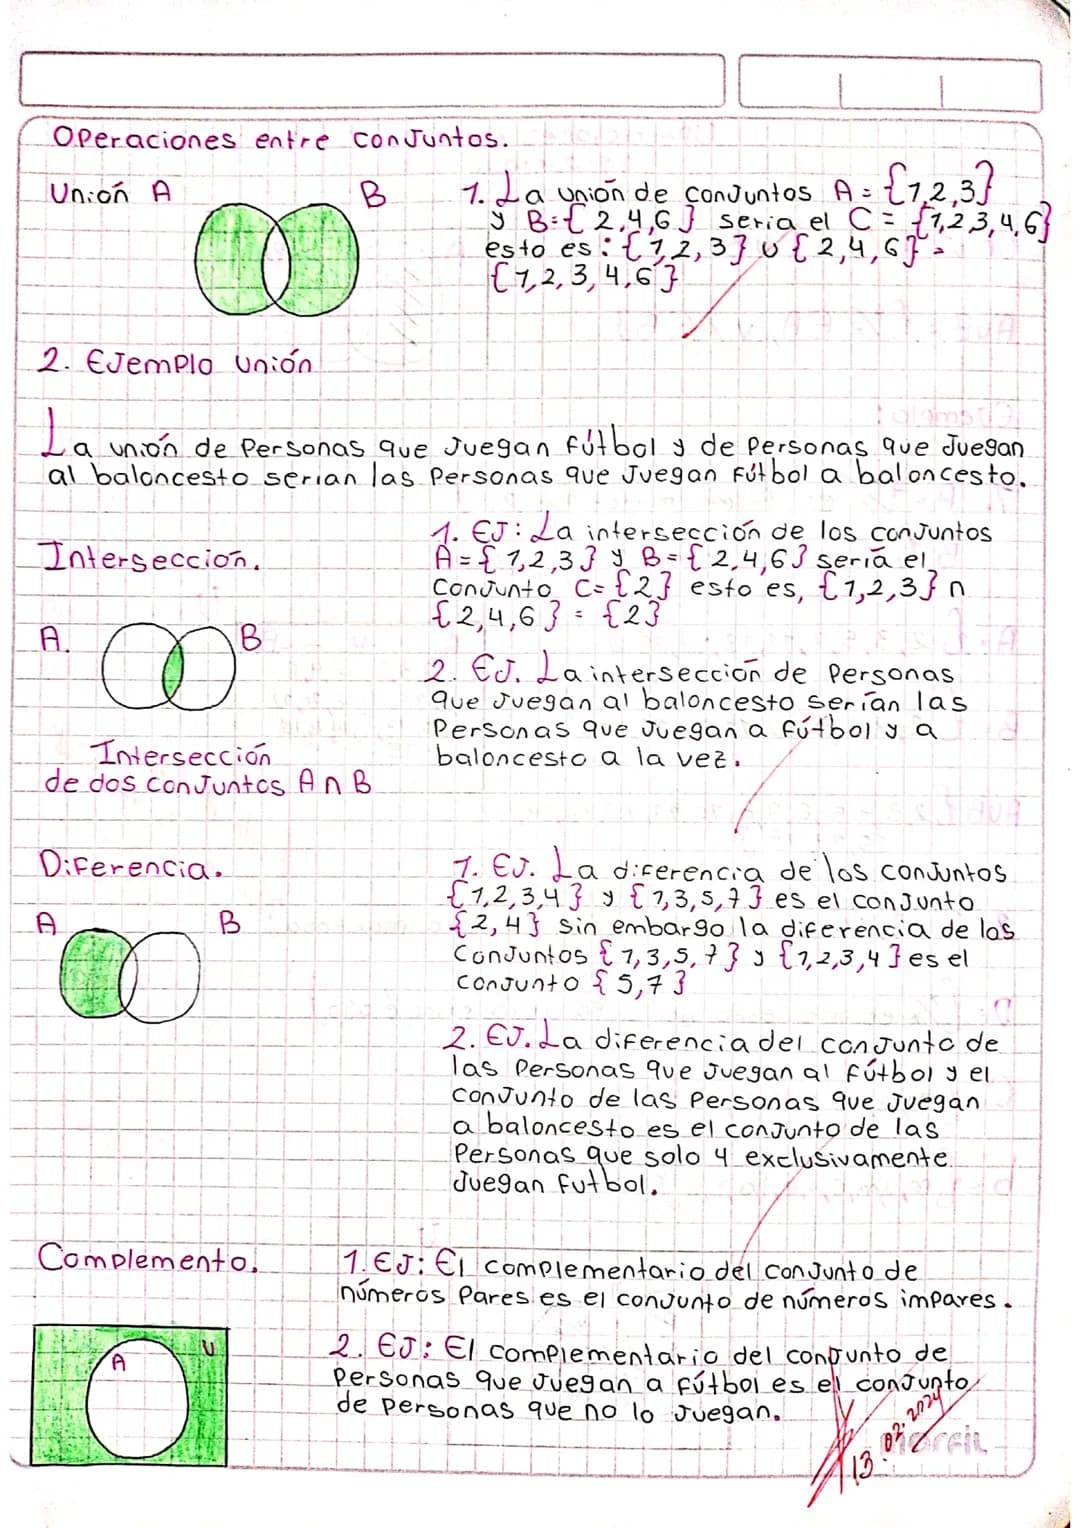 Operaciones entre conjuntos.
Unión A B
1. La unión de conjuntos A = {1,2,3}
y B = { 2,4,6 } seria el C = {1,2,3,4,6}
esto es : {1,2,3} ∪ {2,4,6} =
{1,2,3,4,6}
2. Ejemplo unión
La unión de Personas que Juegan fútbol y de Personas que Juegan
al baloncesto serian las Personas que Juegan Fútbol a baloncesto.
Intersección.
A. B
Intersección
de dos conjuntos A ∩ B
1. EJ: La intersección de los conjuntos
A = { 1,2,3 } y B = { 2,4,6 } seria el
Conjunto C= {2} esto es, {1,2,3} ∩
{2,4,6} = {2}
2. EJ. La intersección de Personas
que Juegan al baloncesto serían las
Personas que Juegan a fútbol y a
baloncesto a la vez.
Diferencia.
A B
1. EJ. La diferencia de los conjuntos
{1,2,3,4} y {1,3,5,7} es el conjunto
{2,4} sin embargo la diferencia de los
Conjuntos {1,3,5,7} y {1,2,3,4} es el
conjunto {5,7}
2. EJ. La diferencia del conjunto de
las Personas que Juegan al fútbol y el
conjunto de las Personas que Juegan
a baloncesto es el conjunto de las
Personas que solo y exclusivamente
Juegan futbol.
Complemento.
A U
1. EJ: El complementario del conjunto de
números Pares es el conjunto de números impares.
2. EJ: El complementario del conjunto de
Personas que Juegan a fútbol es el conjunto
de Personas que no lo Juegan.
13.02.2024